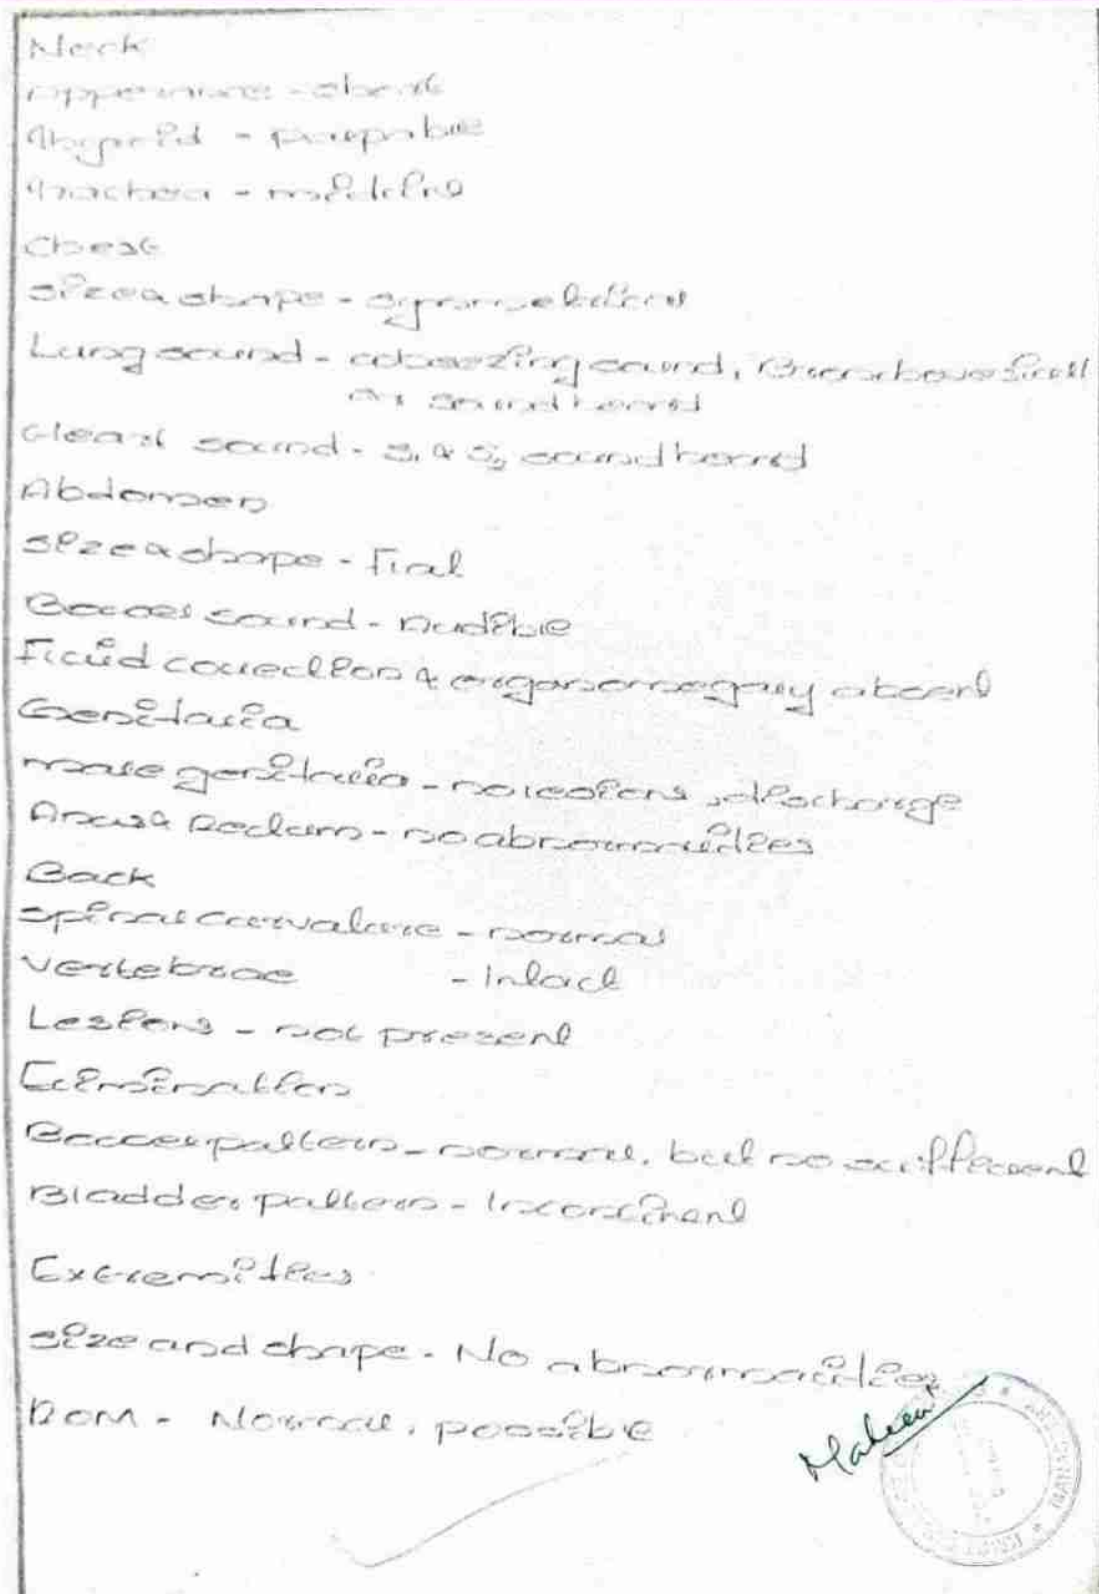 Neck
Appearance - short
Thyroid - palpable
Trachea - midline
Chest
Size & shape - symmetrical
Lung sound - wheezing sound, Bronchovesicul
ar sound heard
Heart sound - S1 & S2 sound heard
Abdomen
Size & shape - Flat
Bowel sound - Audible
Fluid collection & organomegaly absent
Genitalia
male genitalia - no lesions, discharge
Anus & Rectum - no abnormalities
Back
Spinal curvature - normal
Vertebrae - Intact
Lesions - not present
Elimination
Bowel pattern - normal, but no sufficient
Bladder pattern - Incontinent
Extremities
Size and shape - No abnormalities
ROM - Normal, possible